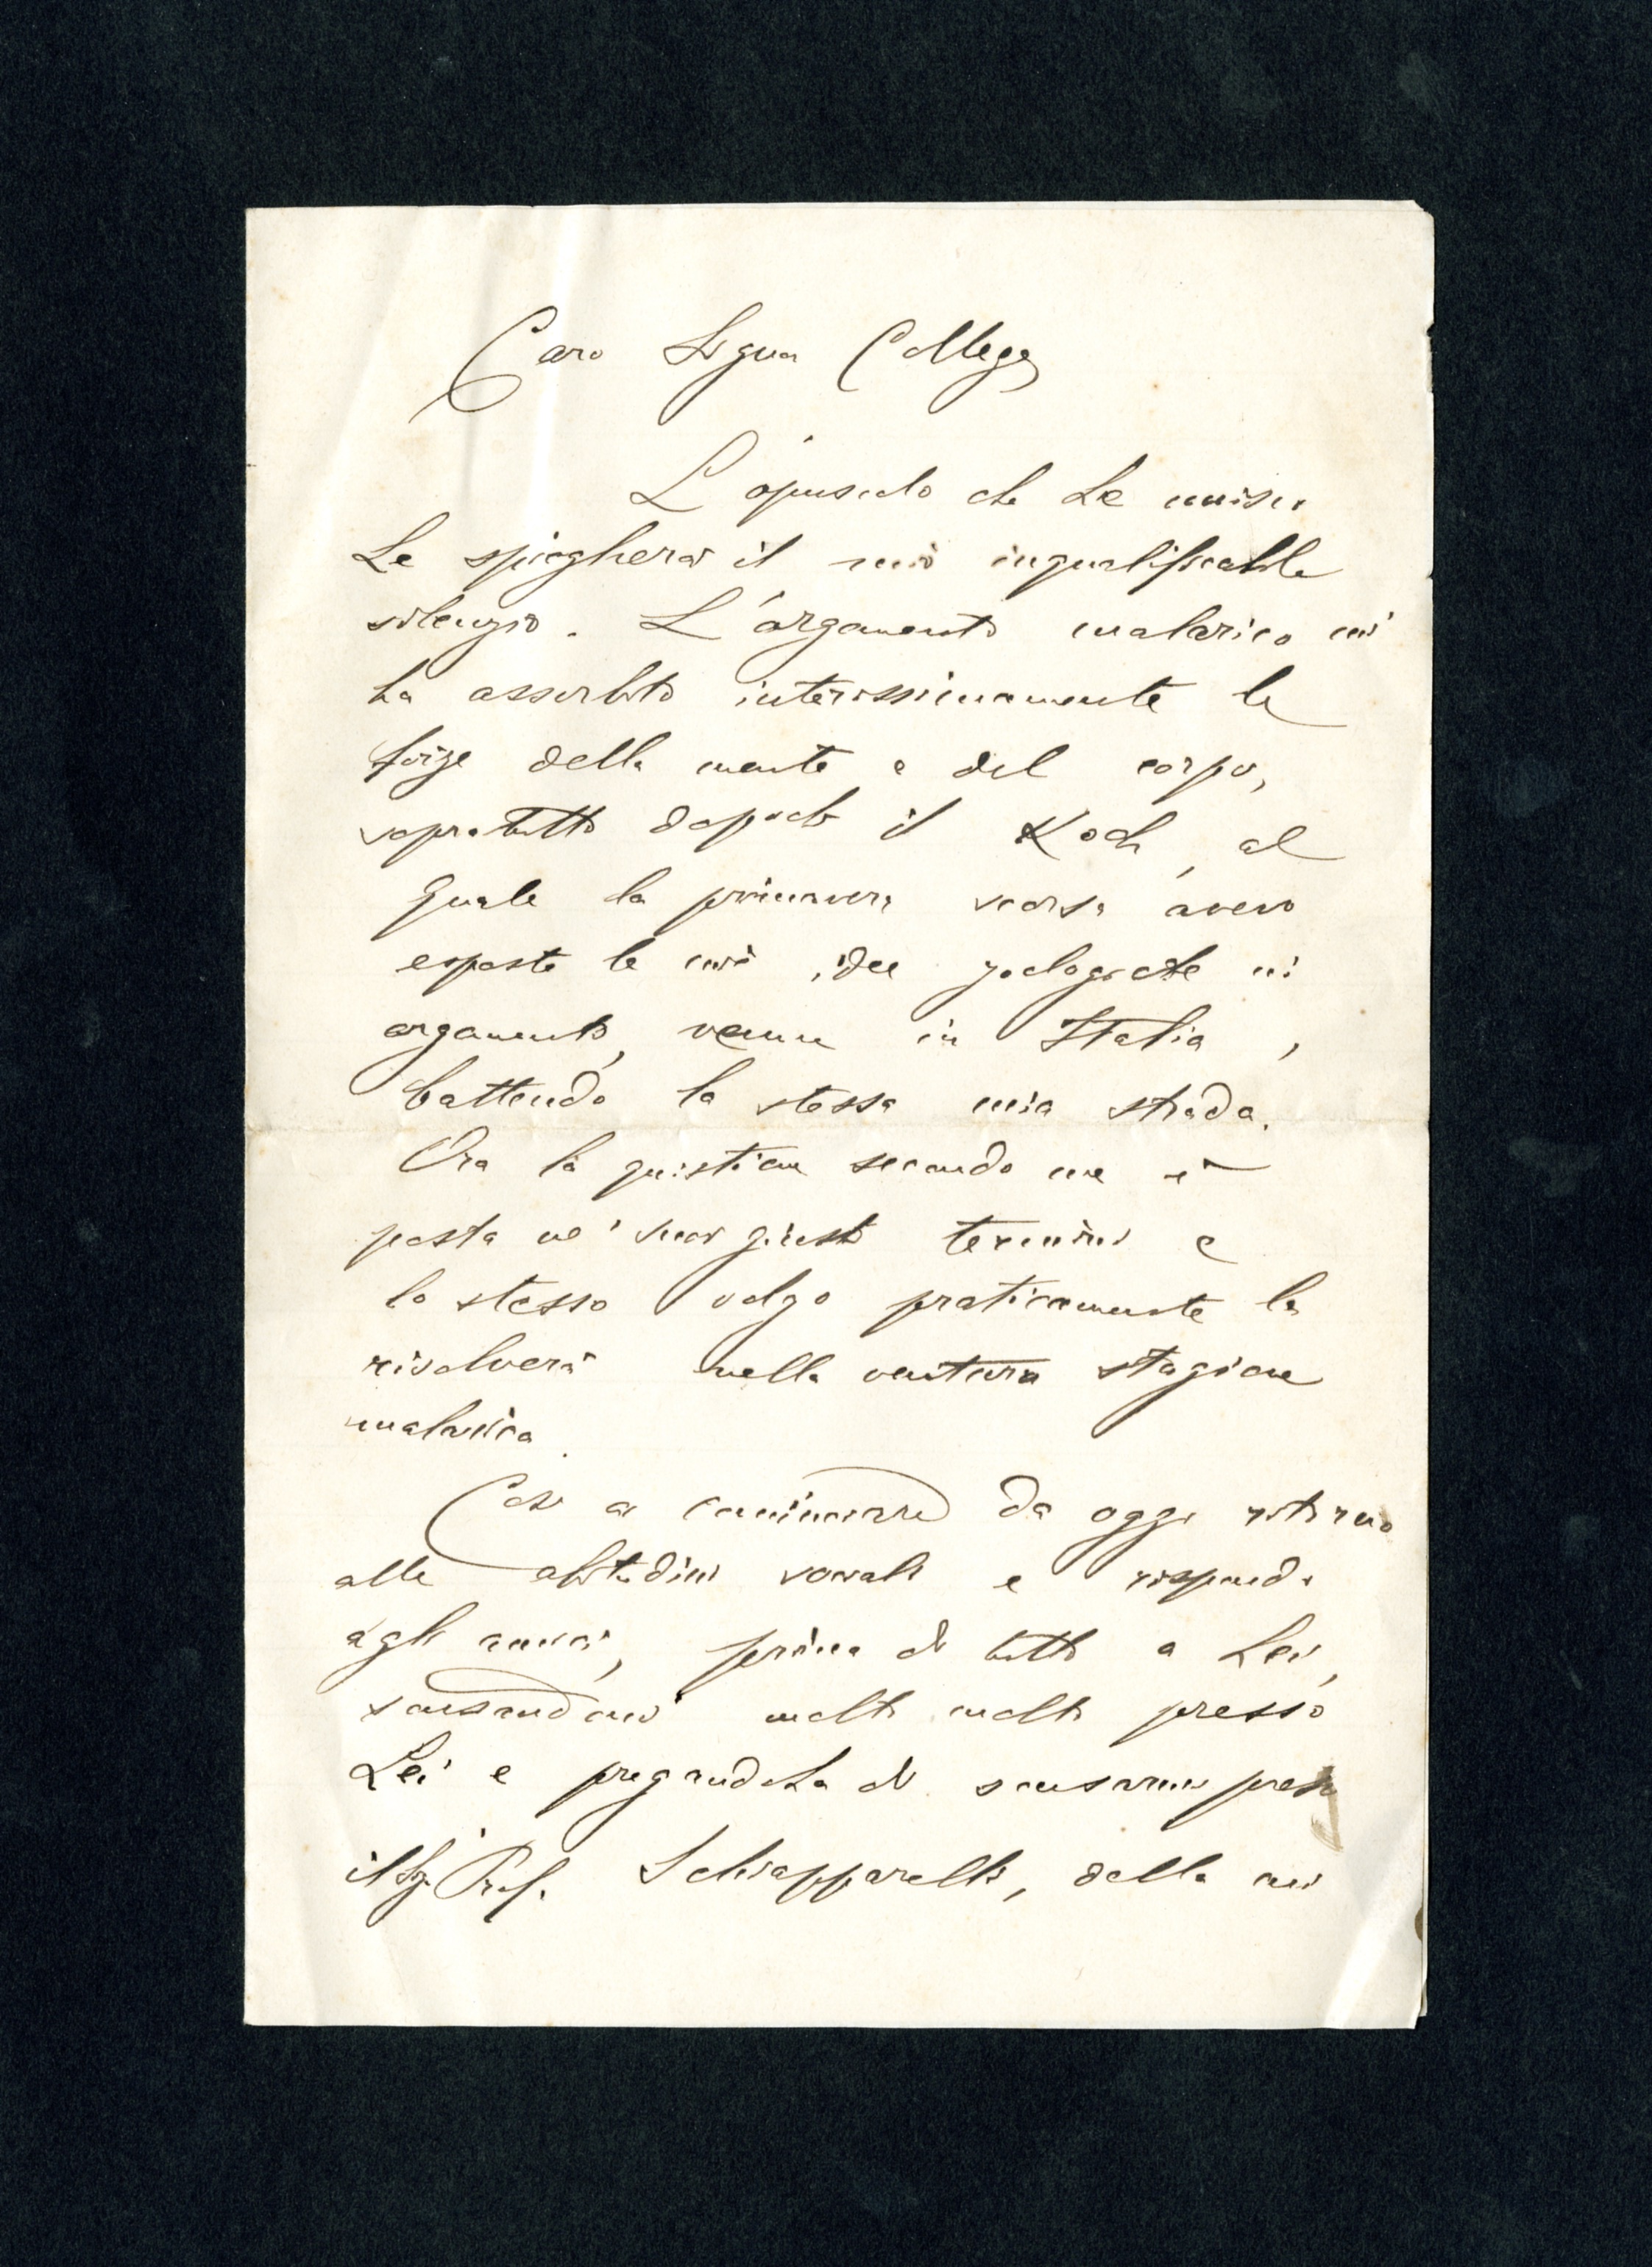 Caro Signor Collega
L'opuscolo che Le unisco
Le spiegherà il mio inqualificabile
silenzio. L'argomento malarico mi
ha assorbito interissimamente le
forze della mente e del corpo,
sopratutto dopochè il Koch, al
quale la primavera scorsa avevo
esposte le mie idee zoologiche in
argomento, venne in Italia,
battendo la stessa mia strada.
Ora la quistione secondo me è
posta ne' suoi giusti termini e
lo stesso volgo praticamente la
risolverà nella ventura stagione
malarica.
Così a cominciare da oggi ritorno
alle abitudini sociali e rispondo
agli amici, prima di tutto a Lei,
scusandomi molto molto presso
Lei e pregandoLa di scusarmi presso
il Sig. Prof. Schiapparelli, della mia